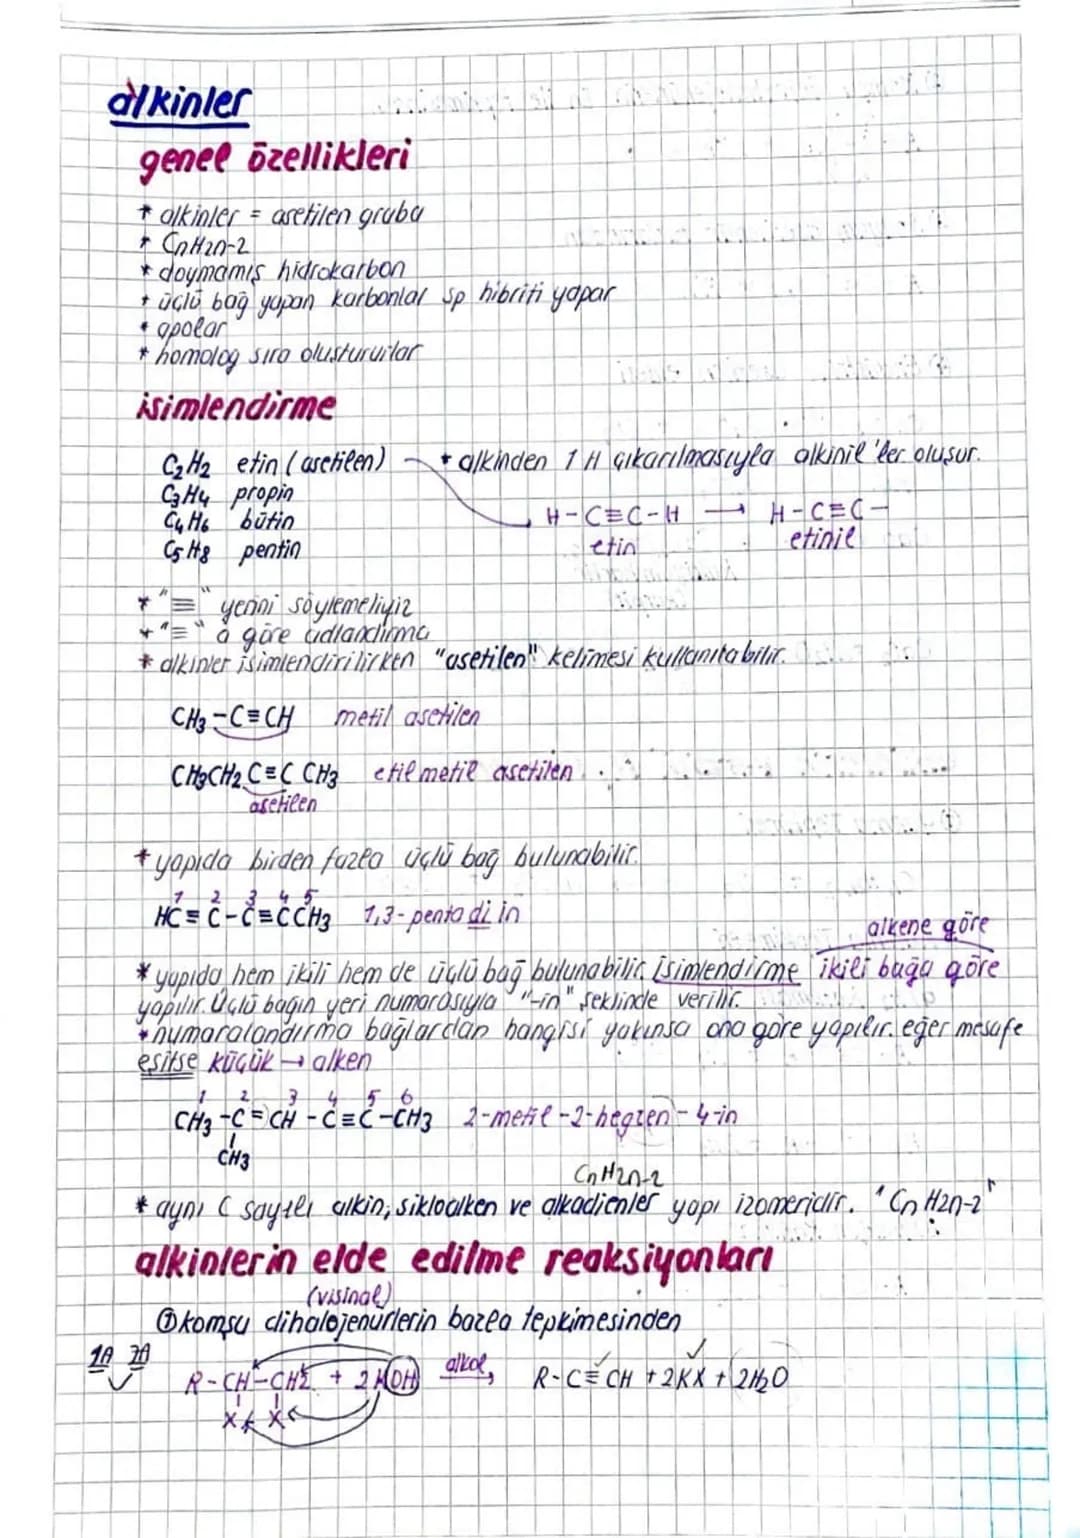 alkinler
genel özellikleri
* alkinler = asetilen grubu
* CnH2n-2
* doymamış hidrokarbon
* üçlü bağ yapan karbonlar sp hibriti yapar
* apolar
* homolog sıra oluştururlar
isimlendirme
C2H2 etin (asetilen) * alkinden 1 H çıkarılmasıyla alkinil'ler oluşur.
C3H4 propin
C4H6 bütin
H-C≡C-H → H-C≡C-
C5H8 pentin
etin etinil
* "≡" yerini söylemeliyiz
* "≡" a göre adlandırma
* alkinler isimlendirilirken "asetilen" kelimesi kullanılabilir.
CH3-C≡CH metil asetilen
CH3CH2C≡C CH3 etil metil asetilen
asetilen
* yapıda birden fazla üçlü bağ bulunabilir.
1 2 3 4 5
HC≡C-C≡CCH3 1,3-pentadiin
alkene göre
* yapıda hem ikili hem de üçlü bağ bulunabilir. İsimlendirme ikili bağa göre
yapılır. Üçlü bağın yeri numarasıyla "-in" şeklinde verilir.
* numaralandırma bağlardan hangisi yakınsa ona göre yapılır. eğer mesafe
eşitse küçük → alken
1 2 3 4 5 6
CH3-C=CH-C≡C-CH3 2-metil-2-hegzen-4-in
CH3
CnH2n-2
* aynı C sayılı alkin, sikloalken ve alkadienler yapı izomeridir. "CnH2n-2"
alkinlerin elde edilme reaksiyonları
(visinal)
① komşu dihalojenürlerin bazla tepkimesinden
1A 7A
R-CH-CH2 + 2KOH alkol, R-C≡CH + 2KX + 2H2O
X X